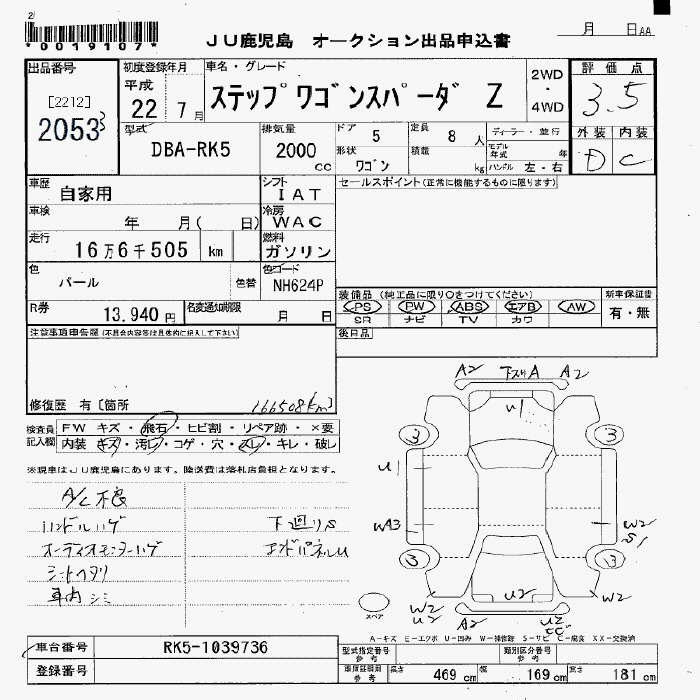 2
*0019107*
JU鹿児島 オークション出品申込書
月 日AA
出品番号
[2212]
2053
3
初度登録年月
平成
22 7月
車名・グレード
ステップワゴンスパーダ Z
2WD
・
4WD
評価点
3.5
外装 内装
D C
型式
DBA-RK5
排気量
2000
cc
ドア 5
形状 ワゴン
定員 8 人
積載 kg
ディーラー・並行
モデル年式 年
ハンドル 左・右
車歴
自家用
シフト
IAT
車検
年 月( 日)
冷房
WAC
走行
16万6千505 km
燃料
ガソリン
色
パール
色替
色コード
NH624P
R券
13,940円
名変通知期限
月 日
セールスポイント(正常に機能するものに限ります)
装備品(純正品に限り○をつけてください)
PS PW ABS エアB AW
SR ナビ TV カワ
新車保証書
有・無
後日品
注意事項申告欄(不具合内容等は具体的に記入して下さい)
修復歴 有〔箇所
166508km〕
検査員記入欄
FW キズ・飛石・ヒビ割・リペア跡・×要
内装・キズ・汚レ・コゲ・穴・スレ・キレ・破レ
※現車はJU鹿児島にあります。陸送費は落札店負担となります。
A/C不良
ハンドルハゲ
下廻りS
オーディオモニターハゲ
エンドパネルU
シートヘタリ
車内シミ
A2 下スリA A2
U1
3 3
U1
WA3
W2
S1
3 3
U2
W2
U2
W2
A2
U2
CC
スペア
A-キズ E-エクボ U-凹み W-補修跡 S-サビ C-腐食 XX-交換済
車台番号
RK5-1039736
登録番号
型式指定番号
参考
類別区分番号
参考
車庫証明用
参考
長さ 469 cm 幅 169 cm 高さ 181 cm